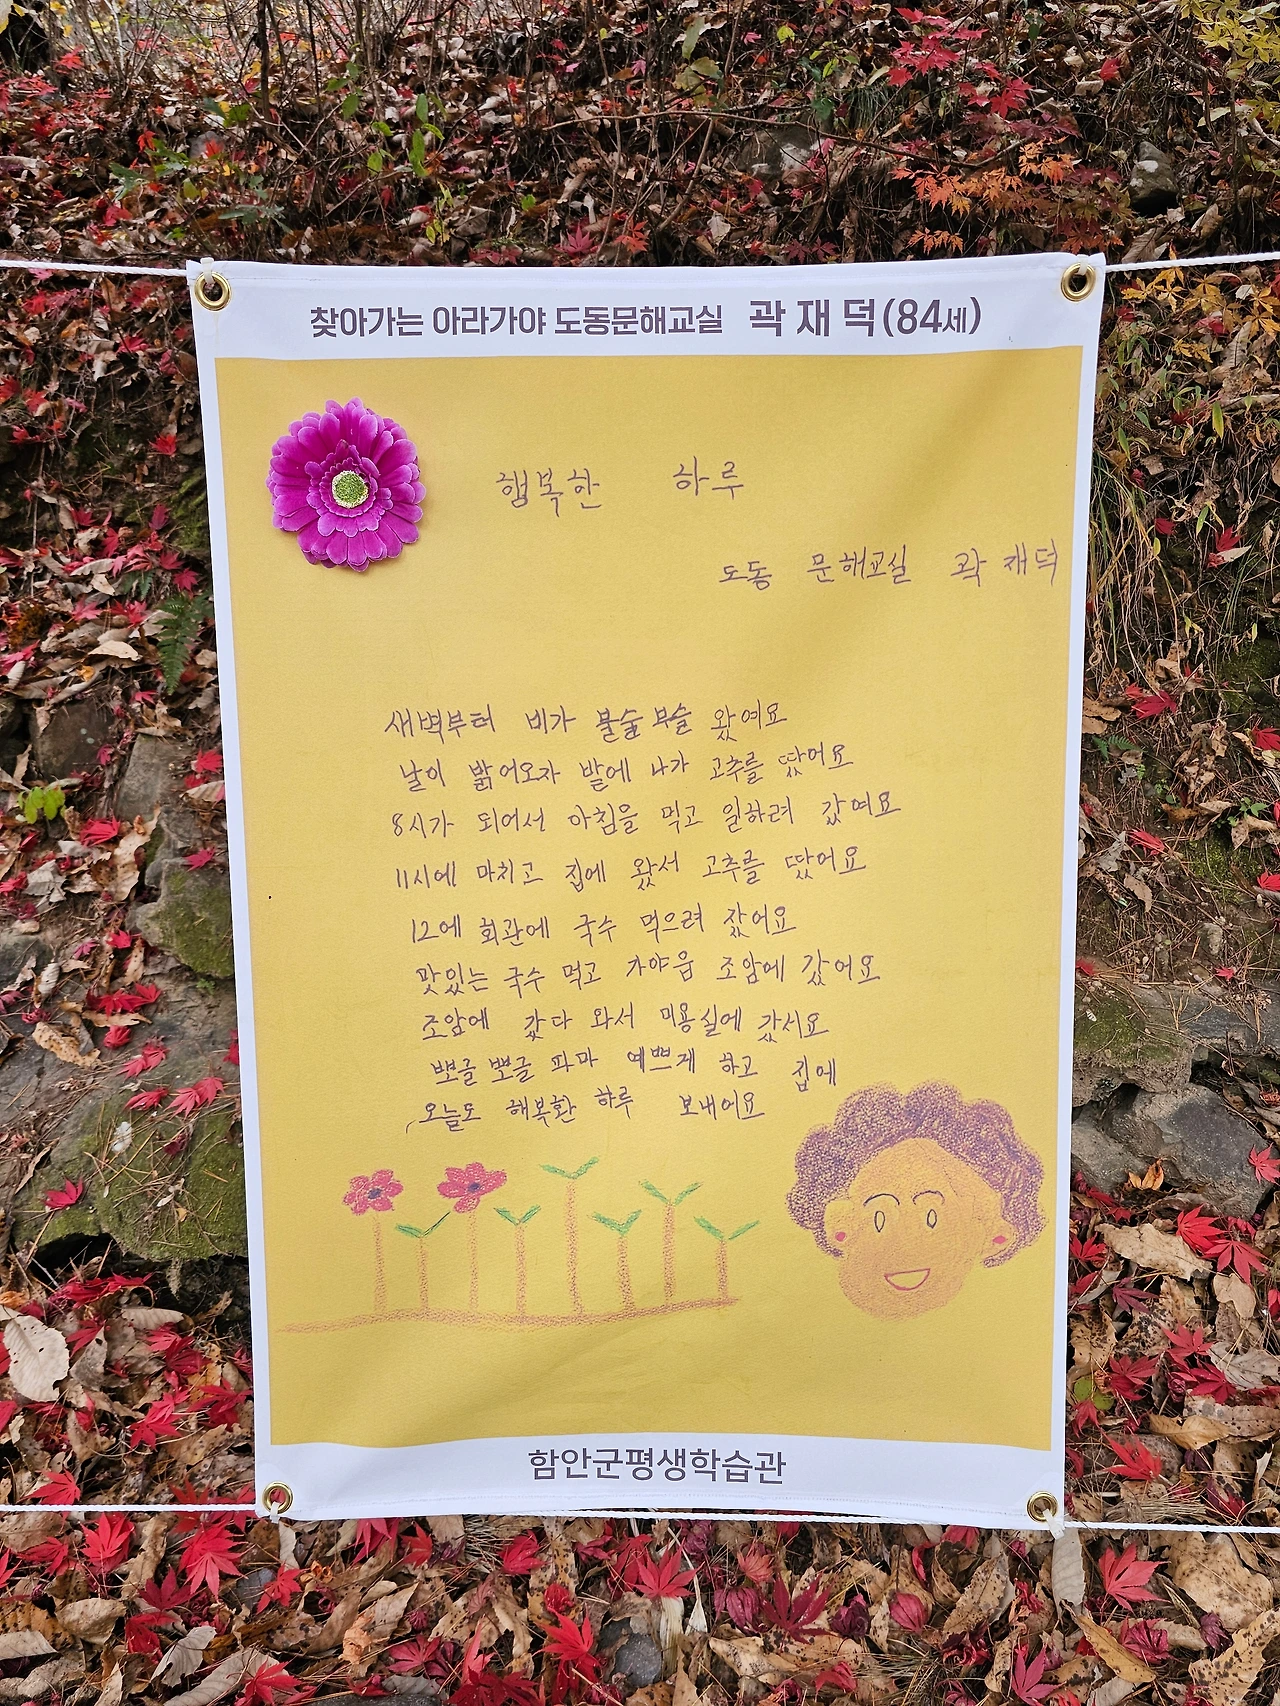 찾아가는 아라가야 도동문해교실 곽재덕(84세)
행복한 하루
도동 문해교실 곽재덕
새벽부터 비가 불술부슬 왔여요
날이 밝어오자 밭에 나가 고추를 땄어요
8시가 되어서 아침을 먹고 일하려 갔여요
11시에 마치고 집에 왔서 고추를 땄어요
12에 회관에 국수 먹으려 갔어요
맛있는 국수 먹고 가야읍 조암에 갔어요
조암에 갔다 와서 미용실에 갔서요
뽀글뽀글 파마 예쁘게 하고 집에
오늘도 해복환 하루 보내어요
함안군평생학습관